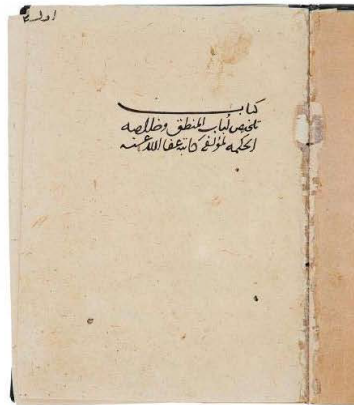 كتاب
تلخيص لباب المنطق وخلاصه
الحكمه لمؤلفه كاتبه عفا الله عنه